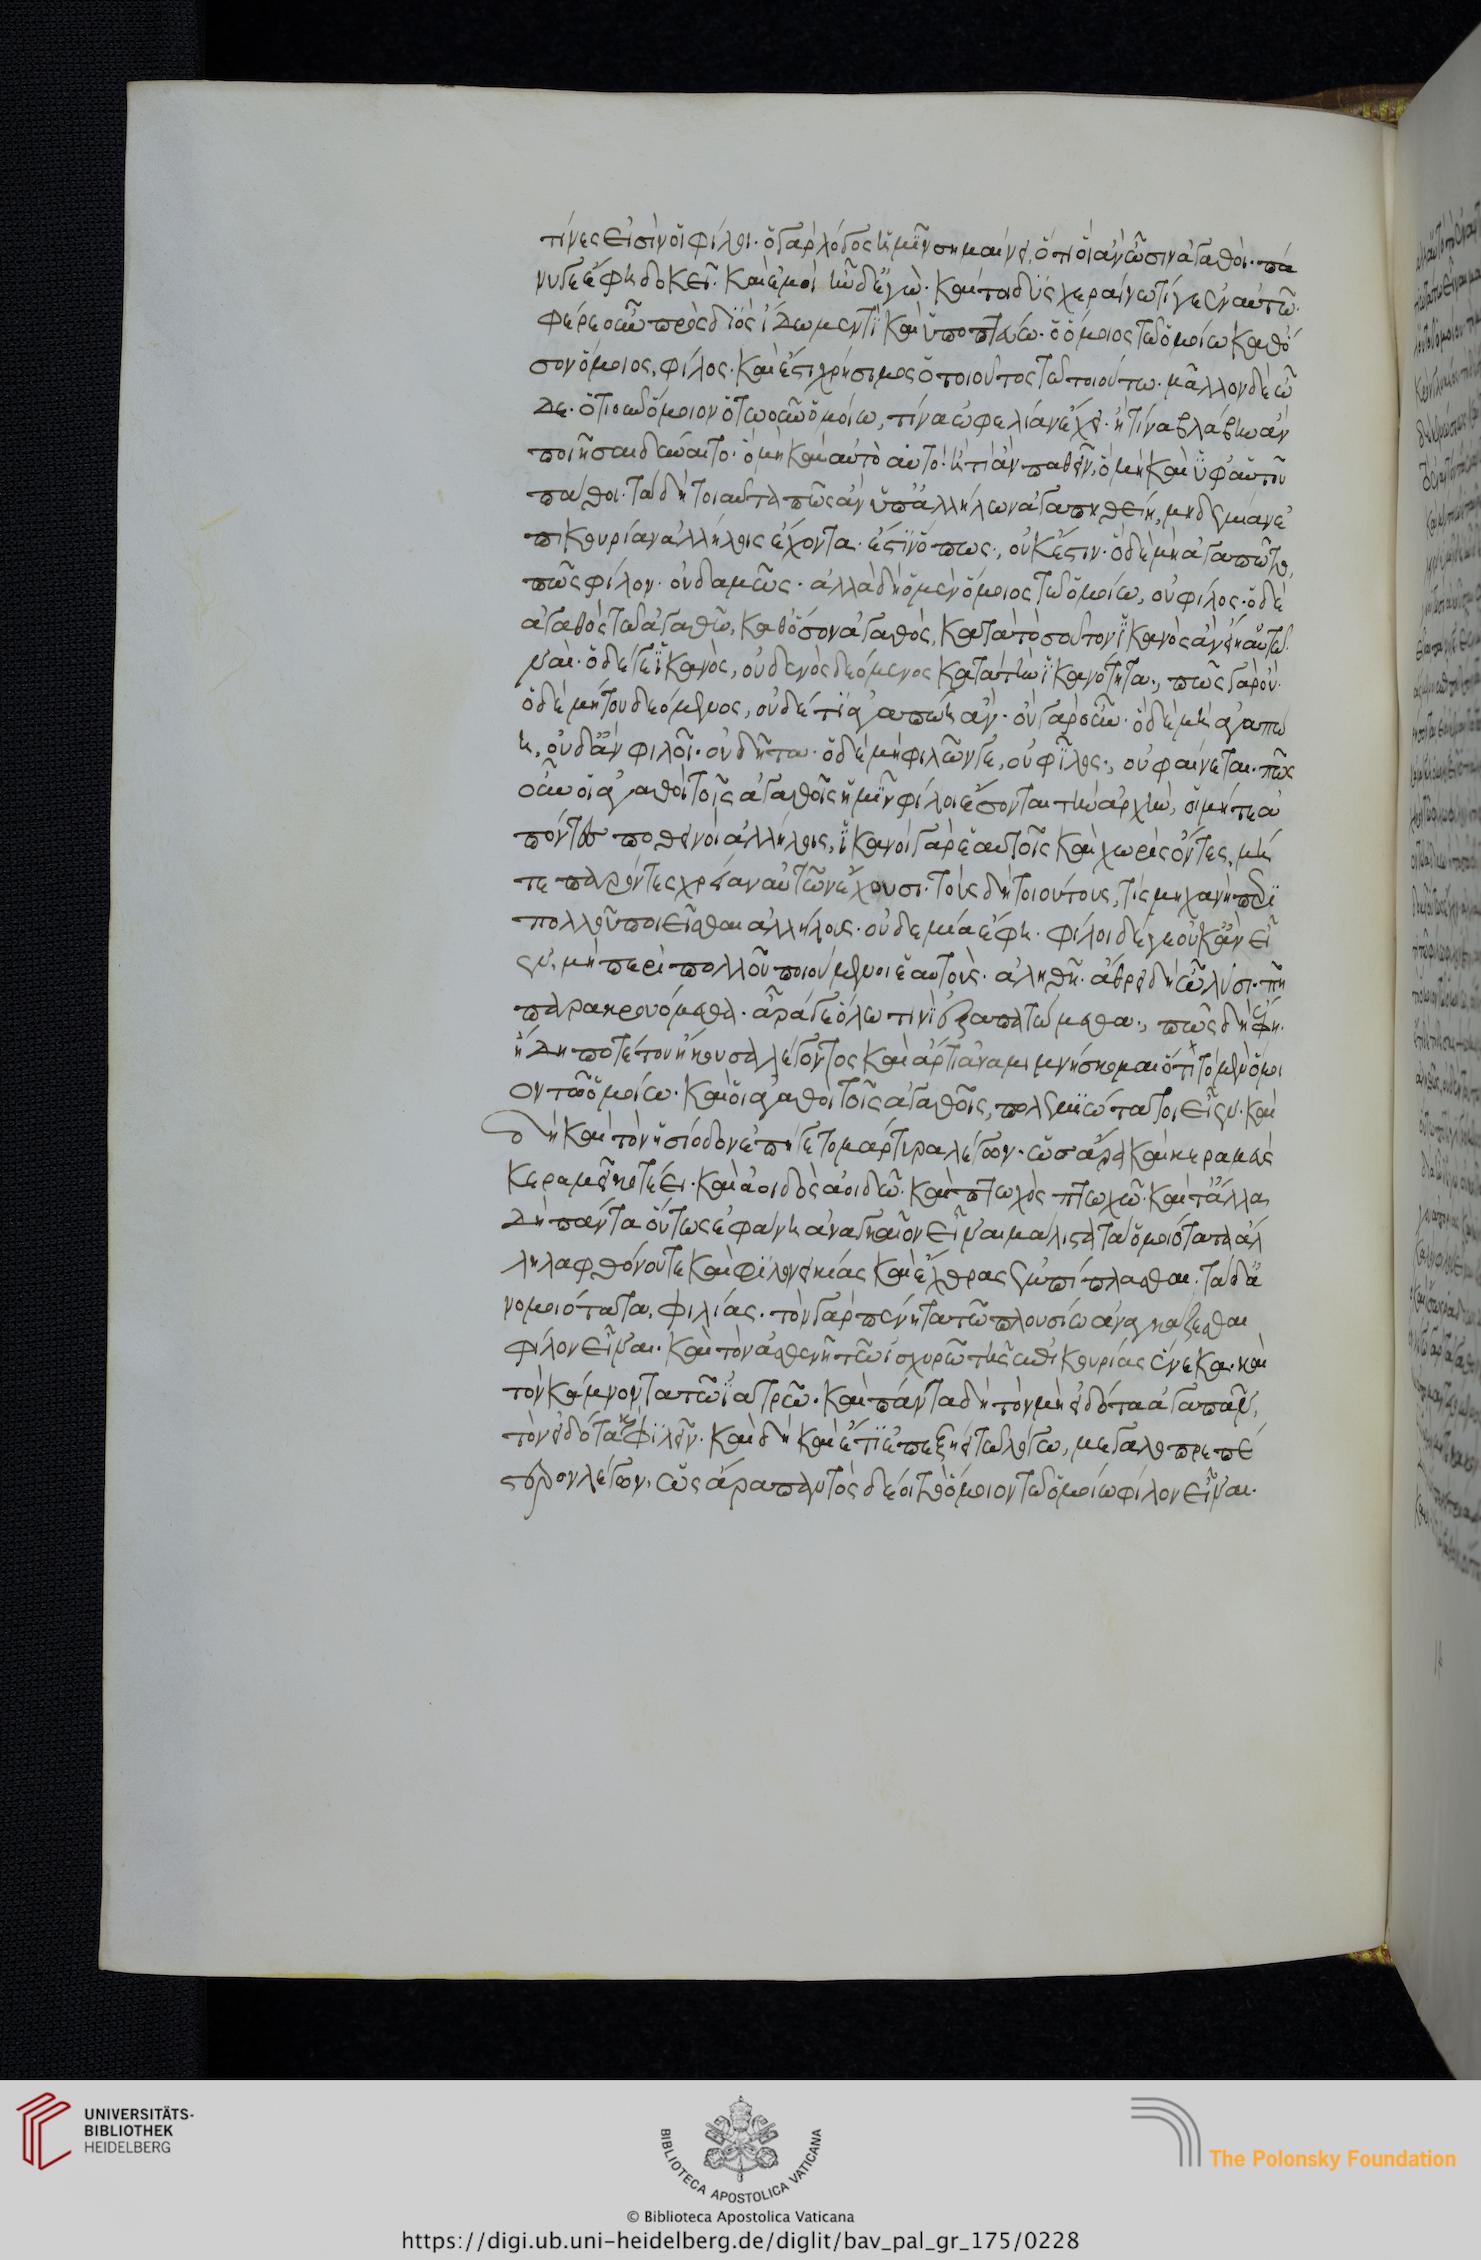 τίνες εἰσὶν οἱ φίλοι· ὁ γὰρ λόγος ἡμῖν σημαίνει, ὅτι οἳ ἂν ὦσιν ἀγαθοί· πά
νυ γε ἔφη δοκεῖ· καὶ ἐμοὶ ἦν δ' ἐγώ· καίτοι δυσχεραίνω τί γε ἐν αὐτῷ·
φέρε οὖν πρὸς διὸς ἴδωμεν τί καὶ ὑποπτεύω· ὁ ὅμοιος τῷ ὁμοίω καθό
σον ὅμοιος, φίλος· καὶ ἔστι χρήσιμος ὁ τοιοῦτος τῷ τοιούτω· μᾶλλον δὲ ὧ
δε· ὁτιοῦν ὅμοιον ὁτωοῦν ὁμοίω, τίνα ὠφελίαν ἔχειν· ἢ τίνα βλάβην ἂν
ποιῆσαι δύναιτο· ὃ μὴ καὶ αὐτὸ αὑτό· ἢ τί ἂν παθεῖν, ὃ μὴ καὶ ὑφ' αὑτοῦ
πάθοι· τὰ δὴ τοιαῦτα πῶς ἂν ὑπ' ἀλλήλων ἀγαπηθείη, μηδεμίαν ἐ
πικουρίαν ἀλλήλοις ἔχοντα· ἔστιν ὅπως·, οὐκ ἔστιν· ὃ δὲ μὴ ἀγαπῶτο,
πῶς φίλον· οὐδαμῶς· ἀλλὰ δὴ ὁ μὲν ὅμοιος τῷ ὁμοίω, οὐ φίλος· ὁ δὲ
ἀγαθὸς τῷ ἀγαθῷ, καθ' ὅσον ἀγαθὸς, κατὰ τοσοῦτον ἱκανὸς ἂν εἴη αὑτῷ·
ναί· ὁ δέ γε ἱκανὸς, οὐδενὸς δεόμενος κατὰ τὴν ἱκανότητα·, πῶς γὰρ οὔ·
ὁ δὲ μή του δεόμενος, οὐδέ τι ἀγαπώη ἄν· οὐ γὰρ οὖν· ὁ δὲ μὴ ἀγαπώ
η, οὐδ' ἂν φιλοῖ· οὐ δῆτα· ὁ δὲ μὴ φιλῶν γε, οὐ φίλος·, οὐ φαίνεται· πῶς
οὖν οἱ ἀγαθοὶ τοῖς ἀγαθοῖς ἡμῖν φίλοι ἔσονται τὴν ἀρχὴν, οἳ μήτε ἀ
πόντες ποθεινοὶ ἀλλήλοις, ἱκανοὶ γὰρ ἑαυτοῖς καὶ χωρὶς ὄντες, μή
τε παρόντες χρείαν αὑτῶν ἔχουσι· τοὺς δὴ τοιούτους, τίς μηχανὴ περὶ
πολλοῦ ποιεῖσθαι ἀλλήλους· οὐδεμία ἔφη· φίλοι δέ γε οὐκ ἂν εἶ
εν, μὴ περὶ πολλοῦ ποιούμενοι ἑαυτούς· ἀληθῆ· ἄθρει δὴ ὦ λύσι· πῆ
παρακρουόμεθα· ἆρά γε ὅλω τινὶ ἐξαπατώμεθα·, πῶς δὴ ἔφη·
ἤδη ποτέ του ἤκουσα λέγοντος καὶ ἄρτι ἀναμιμνήσκομαι ὅτι τὸ μὲν ὅμοι
ον τῷ ὁμοίω· καὶ οἱ ἀγαθοὶ τοῖς ἀγαθοῖς, πολεμιώτατοι εἶεν· καὶ
δὴ καὶ τὸν ἡσίοδον ἐπήγετο μάρτυρα λέγων· ὡς ἄρα καὶ κεραμεὺς
κεραμεῖ κοτέει· καὶ ἀοιδὸς ἀοιδῶ· καὶ πτωχὸς πτωχῶ· καὶ τἄλλα
δὴ πάντα οὕτως ἔφη ἀναγκαῖον εἶναι μάλιστα τὰ ὁμοιότατα ἀλ
ληλα φθόνου τε καὶ φιλονεικίας καὶ ἔχθρας ἐμπίπλασθαι· τὰ δ' ἀ
νομοιότατα, φιλίας· τὸν γὰρ πένητα τῷ πλουσίω ἀναγκάζεσθαι
φίλον εἶναι· καὶ τὸν ἀσθενῆ τῷ ἰσχυρῷ τῆς ἐπικουρίας ἕνεκα· καὶ
τὸν κάμνοντα τῷ ἰατρῷ· καὶ πάντα δὴ τὸν μὴ εἰδότα ἀγαπᾶν,
τὸν εἰδότα καὶ φιλεῖν· καὶ δὴ καὶ ἔτι ἐπεξῄει τῷ λόγω, μεγαλοπρεπέ
στερον λέγων· ὡς ἄρα παντὸς δέοι τὸ ὅμοιον τῷ ὁμοίω φίλον εἶναι·
UNIVERSITÄTS-
BIBLIOTHEK
HEIDELBERG
BIBLIOTECA APOSTOLICA VATICANA
The Polonsky Foundation
© Biblioteca Apostolica Vaticana
https://digi.ub.uni-heidelberg.de/diglit/bav_pal_gr_175/0228